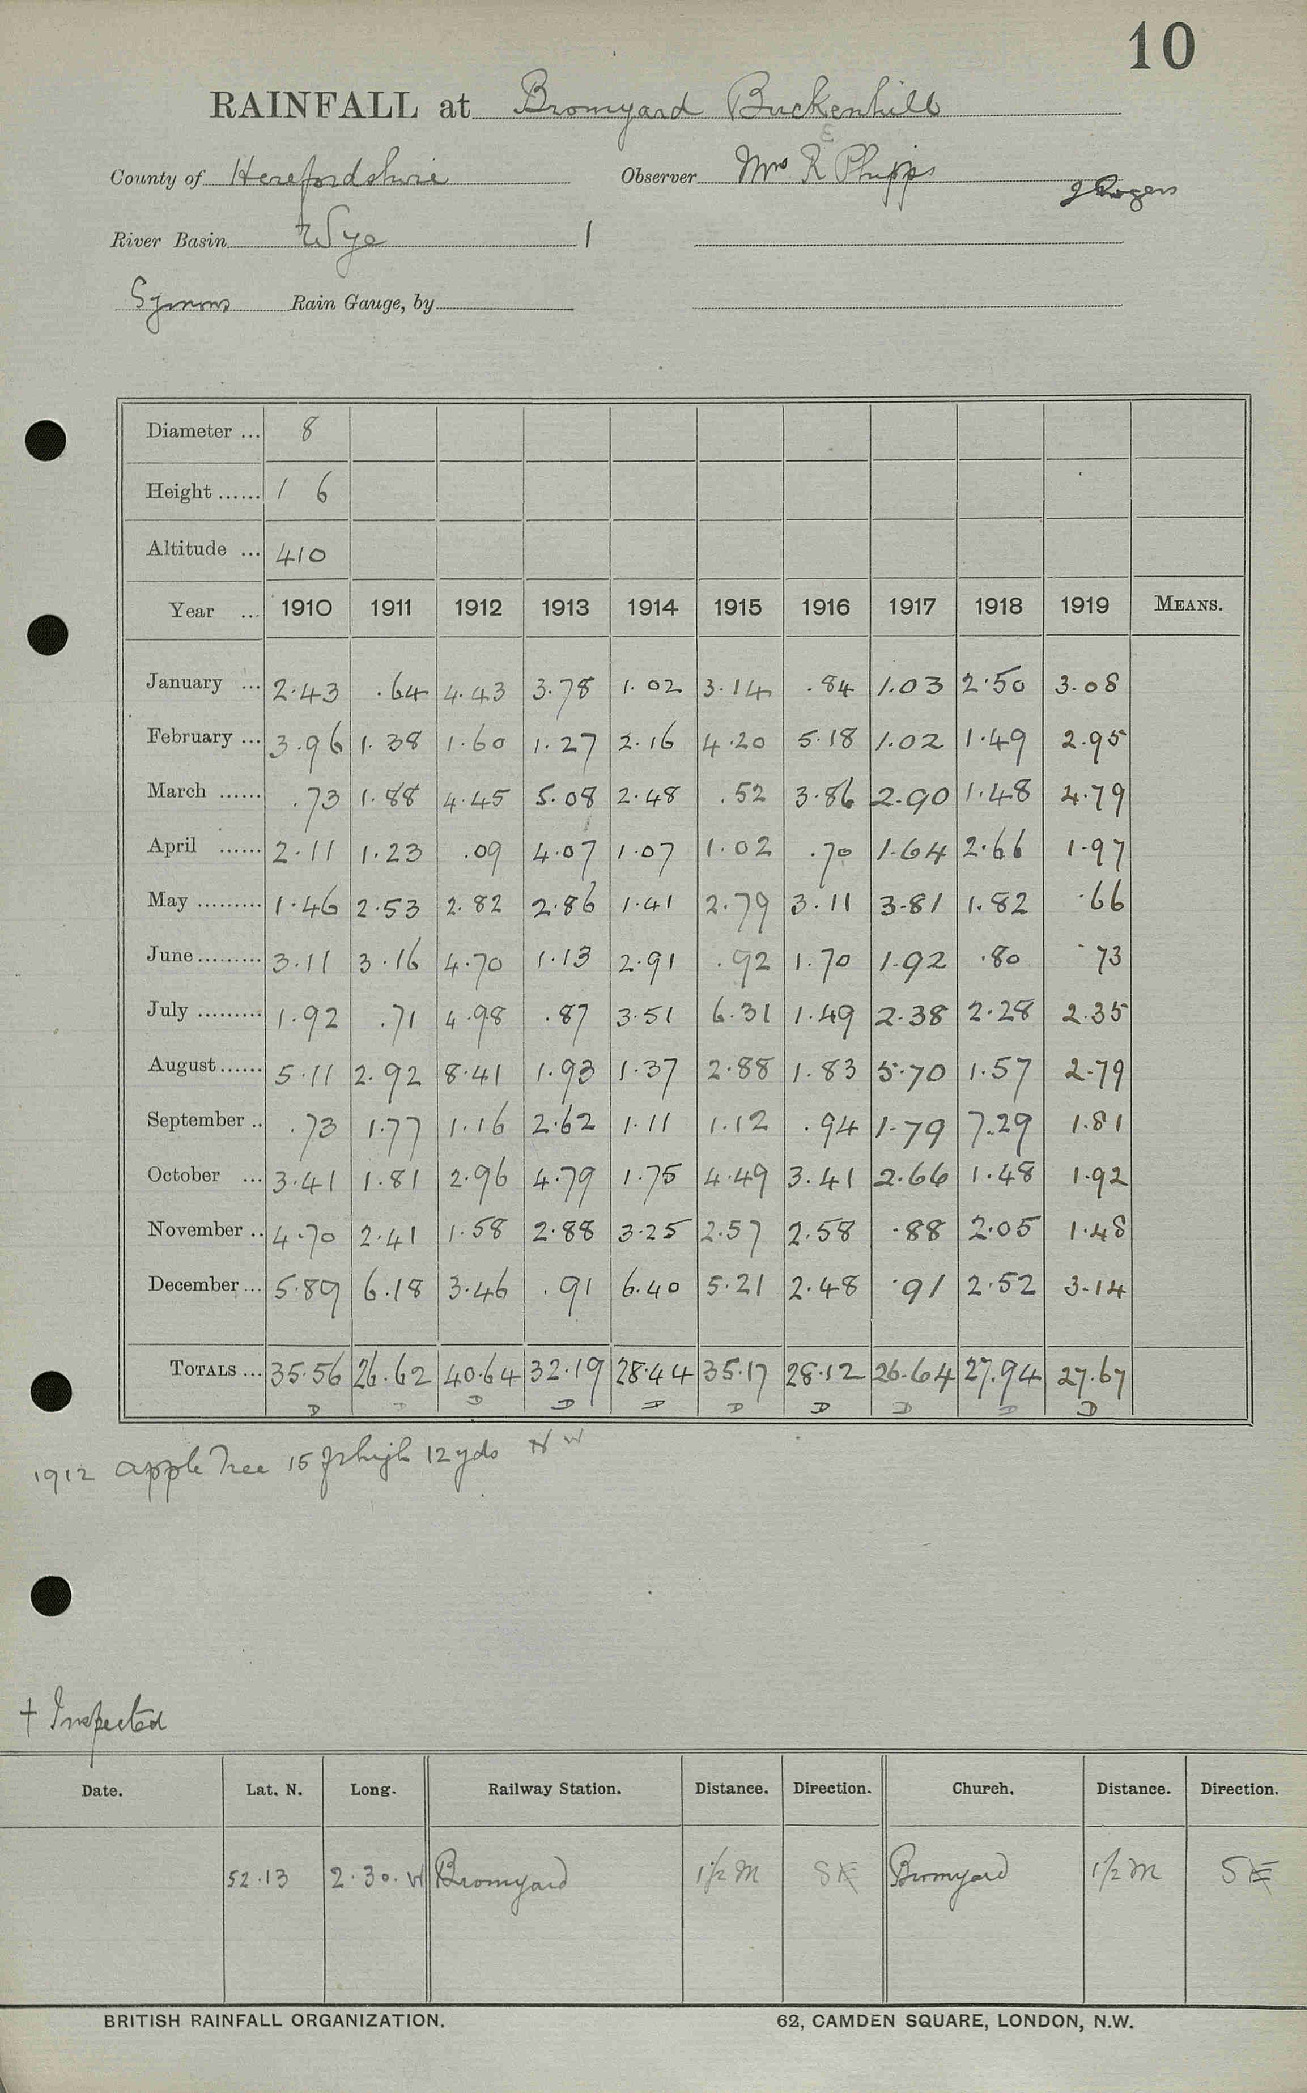 10
RAINFALL at Bromyard Buckenhill
County of Herefordshire Observer Mrs R Phipps
E
J Rogers
River Basin Wye 1
Symons Rain Gauge, by
Diameter ... 8
Height ...... 1 6
Altitude ... 410
Year ... 1910 1911 1912 1913 1914 1915 1916 1917 1918 1919 MEANS.
January ... 2.43 .64 4.43 3.78 1.02 3.14 .84 1.03 2.50 3.08
February ... 3.96 1.38 1.60 1.27 2.16 4.20 5.18 1.02 1.49 2.95
March ...... .73 1.88 4.45 5.08 2.48 .52 3.86 2.90 1.48 4.79
April ...... 2.11 1.23 .09 4.07 1.07 1.02 .70 1.64 2.66 1.97
May ......... 1.46 2.53 2.82 2.86 1.41 2.79 3.11 3.81 1.82 .66
June ......... 3.11 3.16 4.70 1.13 2.91 .92 1.70 1.92 .80 .73
July ......... 1.92 .71 4.98 .87 3.51 6.31 1.49 2.38 2.28 2.35
August ...... 5.11 2.92 8.41 1.93 1.37 2.88 1.83 5.70 1.57 2.79
September .. .73 1.77 1.16 2.62 1.11 1.12 .94 1.79 7.29 1.81
October ... 3.41 1.81 2.96 4.79 1.75 4.49 3.41 2.66 1.48 1.92
November .. 4.70 2.41 1.58 2.88 3.25 2.57 2.58 .88 2.05 1.48
December ... 5.89 6.18 3.46 .91 6.40 5.21 2.48 .91 2.52 3.14
TOTALS ... 35.56 26.62 40.64 32.19 28.44 35.17 28.12 26.64 27.94 27.67
D D D D D D D D D D
1912 apple Tree 15 ft high 12 yds NW
† Inspected
Date. Lat. N. Long. Railway Station. Distance. Direction. Church. Distance. Direction.
52.13 2.30.W Bromyard 1½ M SE Bromyard 1½ M SE
BRITISH RAINFALL ORGANIZATION. 62, CAMDEN SQUARE, LONDON, N.W.